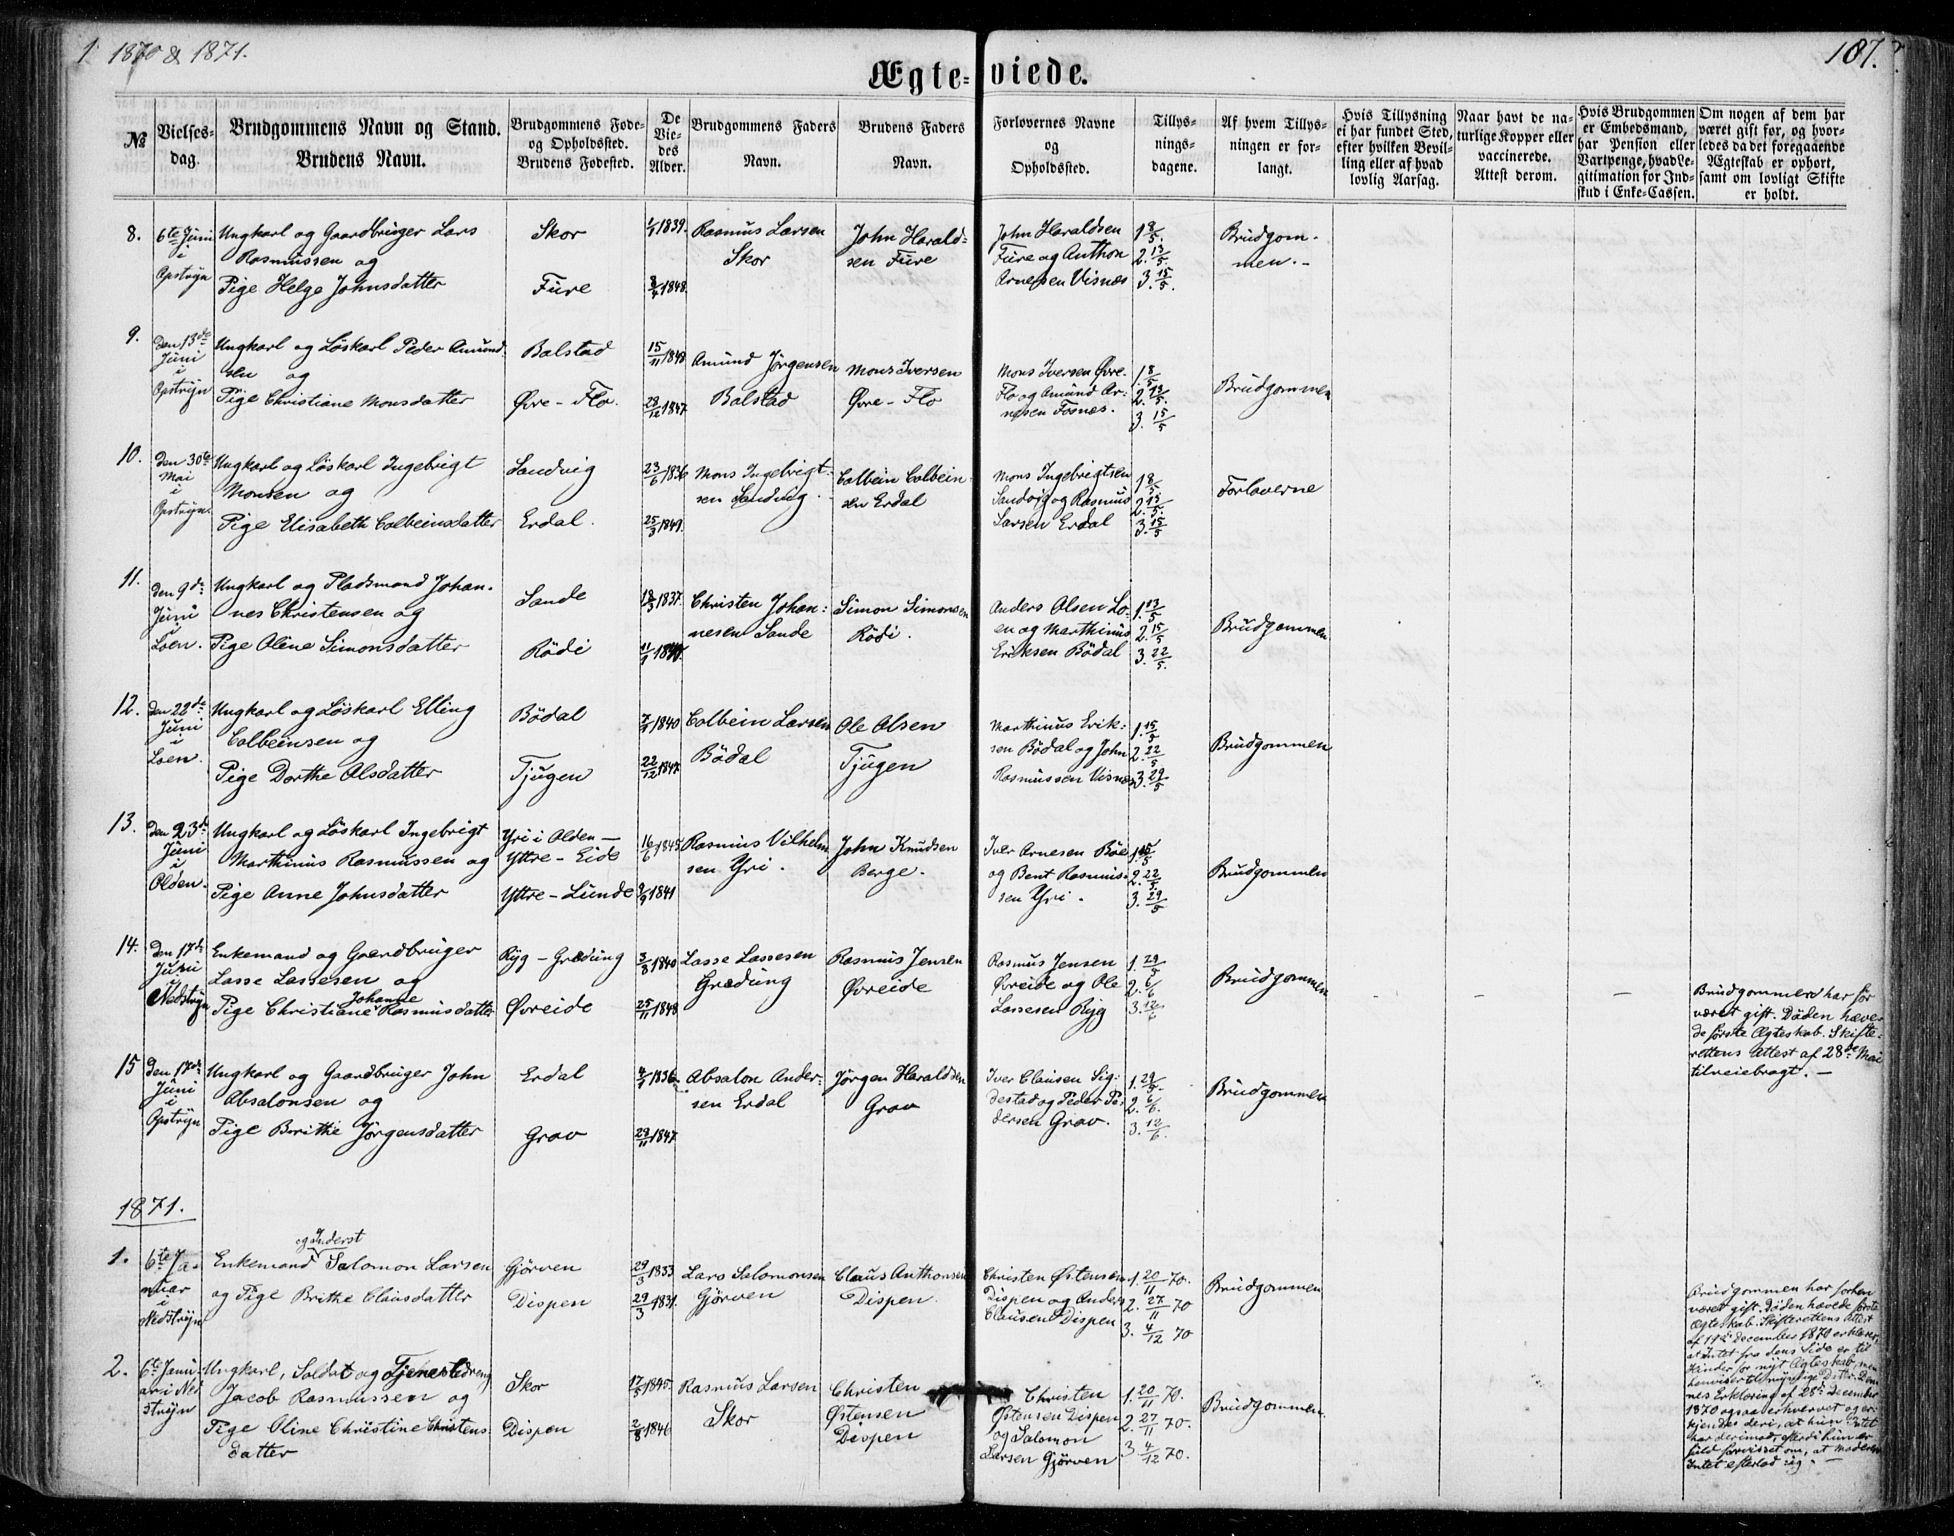 1 1870 & 1871.
107.
Ægte-viede.
№
Vielses-dag.
Brudgommens Navn og Stand.
Brudens Navn.
Brudgommens Føde-
og Opholdssted.
Brudens Fødested.
De
Vie-
des
Alder.
Brudgommens Faders
Navn.
Brudens Faders
Navn.
Forlovernes Navne
og
Opholdssted.
Tillys-
nings-
dagene.
Af hvem Tillys-
ningen er for-
langt.
Hvis Tillysning
ei har fundet Sted,
efter hvilken Bevil-
ling eller af hvad
lovlig Aarsag.
Naar havt de na-
turlige Kopper eller
vaccinerede.
Attest derom.
Hvis Brudgommen
er Embedsmand,
har Pension eller
Vartpenge, hvad Le-
gitimation for Ind-
skud i Enke-Cassen.
Om nogen af dem har
været gift før, og hvor-
ledes da det foregaaende
Ægteskab er ophørt,
samt om lovligt Skifte
er holdt.
8.
6te Juni
i
Opstryn
Ungkarl og Gaardbruger Lars
Rasmussen og
Pige Helge Johnsdatter
Skor
Fure
1839.
1848.
Rasmus Larsen
Skor
John Harald-
sen Fure
John Haraldsen
Fure og Anthon
Arnesen Visnes
1. 8/5.
2. 13/5.
3. 15/5.
Brudgom-
men.-
9.
den 13de
Juni
i
Opstryn
Ungkarl og Löskarl Peder Amund-
sen og
Pige Christiane Monsdatter
Bolstad
Øvre-Flo.
15/11 1848
28/12 1847
Amund Jörgensen
Bolstad
Mons Iversen
Øvre-Flo
Mons Iversen Øvre-
Flo og Amund Ar-
nesen Fosnes.
1. 8/5
2. 13/5.
3. 15/5
Brudgommen
10.
den 30te
Mai
i
Opstryn.
Ungkarl og Löskarl Ingebrigt
Monsen og
Pige Elisabeth Colbeinsdatter
Sandvig
Erdal.
23/6 1836
25/3 1849.
Mons Ingebrigt-
sen Sandvig.
Colbein Colbein-
sen Erdal
Mons Ingebrigtsen
Sandvig og Rasmus
Larsen Erdal
1. 8/5
2. 13/5.
3. 15/5
Forloverne
11.
den 9de
Juni
i
Loen.
Ungkarl og Pladsmand Johan-
nes Christensen og
Pige Oline Simonsdatter
Sande
Rödi
18/3 1837.
Christen Johan-
nesen Sande
Simon Simonsen
Rödi.
Anders Olsen Lo-
en og Marthinus
Eriksen Bödal
1. 13/5
2. 15/5
3. 22/5.
Brudgommen
12.
den 22de
Juni
i
Loen.
Ungkarl og Löskarl Elling
Colbeinsen og
Pige Dorthe Olsdatter
Bödal
Tjugen
1840
22/12 1847.
Colbein Larsen
Bödal
Ole Olsen
Tjugen
Marthinus Erik-
sen Bödal og John
Rasmussen Visnes
1. 15/5
2. 22/5
3. 29/5
Brudgommen
13.
den 23de
Juni
i
Olden.
Ungkarl og Löskarl Ingebrigt
Marthinus Rasmussen og
Pige Anne Johnsdatter
Yri i Olden-
Yttre-Eide
Yttre-Lunde
16/6 1845
1841
Rasmus Vilhelm-
sen Yri.
John Knudsen
Berge.
Iver Arnesen Böe
og Bent Rasmus-
sen Yri.
1. 15/5
2. 22/5.
3. 29/5
Brudgommen
14.
den 17de
Juni
i
Nedstryn
Enkemand og Gaardbruger
Lasse Lassesen og
Johanne
Pige Christiane Rasmusdatter
Ryg-Grædung
Øvreide
3/8 1840
25/11 1848
Lasse Lassesen
Grædung
Rasmus Jensen
Øvreide
Rasmus Jensen
Øvreide og Ole
Lassesen Ryg
1. 29/5
2. 6/6
3. 12/6
Brudgommen
-
-
-
Brudgommen har för
været gift. Döden hæve-
de förste Ægteskab. Skifte-
rettens Attest af 28de Mai
tilveiebragt. -
15
den 17de
Juni
i
Opstryn
Ungkarl og Gaardbruger John
Absalonsen og
Pige Berithe Jörgensdatter
Erdal
Grov
1836
29/11 1847.
Absalon Ander-
sen Erdal
Jörgen Haraldsen
Grov
Iver Clausen Sig-
destad og Peder Pe-
dersen Grov.
1. 29/5.
2. 6/6.
3. 12/6.
Brudgommen
1871.
1.
6te Ja-
nuar
i
Nedstryn
og Inderst
Enkemand Salomon Larsen
og Pige Brithe Clausdatter
Gjörven
Dispen
29/3 1833
29/3 1831.
Lars Salomonsen
Gjörven
Claus Anthonsen
Dispen.
Christen Østensen
Dispen og Anders
Clausen Dispen
1. 20/11 70.
2. 27/11 70
3. 4/12 70
Brudgommen
Brudgommen har forhen
været gift. Döden hævede förste
Ægteskab. Skifterettens Attest
af 19de December 1870 erklærer,
at Intet fra dens Side er til
Hinder for nyt Ægteskab, men
henviser til myndige Datter. Den-
nes Erklæring af 28de December
1870 ogsaa erhvervet og er-
kjendes deri, at hun Intet
har derimod, efterdi hun er
fuld forvisset om, at Moderen
Intet efterlod sig. -
2.
6te Janu-
ar i Ned-
stryn
Ungkarl, Soldat og Tjenestedreng
Jacob Rasmussen og
Pige Oline Christine Christens-
datter
Skor
Dispen
17/5 1845.
2/8 1846
Rasmus Larsen
Skor
Christen
Østensen
Dispen
Christen
Østensen Dispen
og Salomon
Larsen Gjörven
1. 20/11 70.
2. 27/11 70.
3 4/12 70.
Brudgommen.